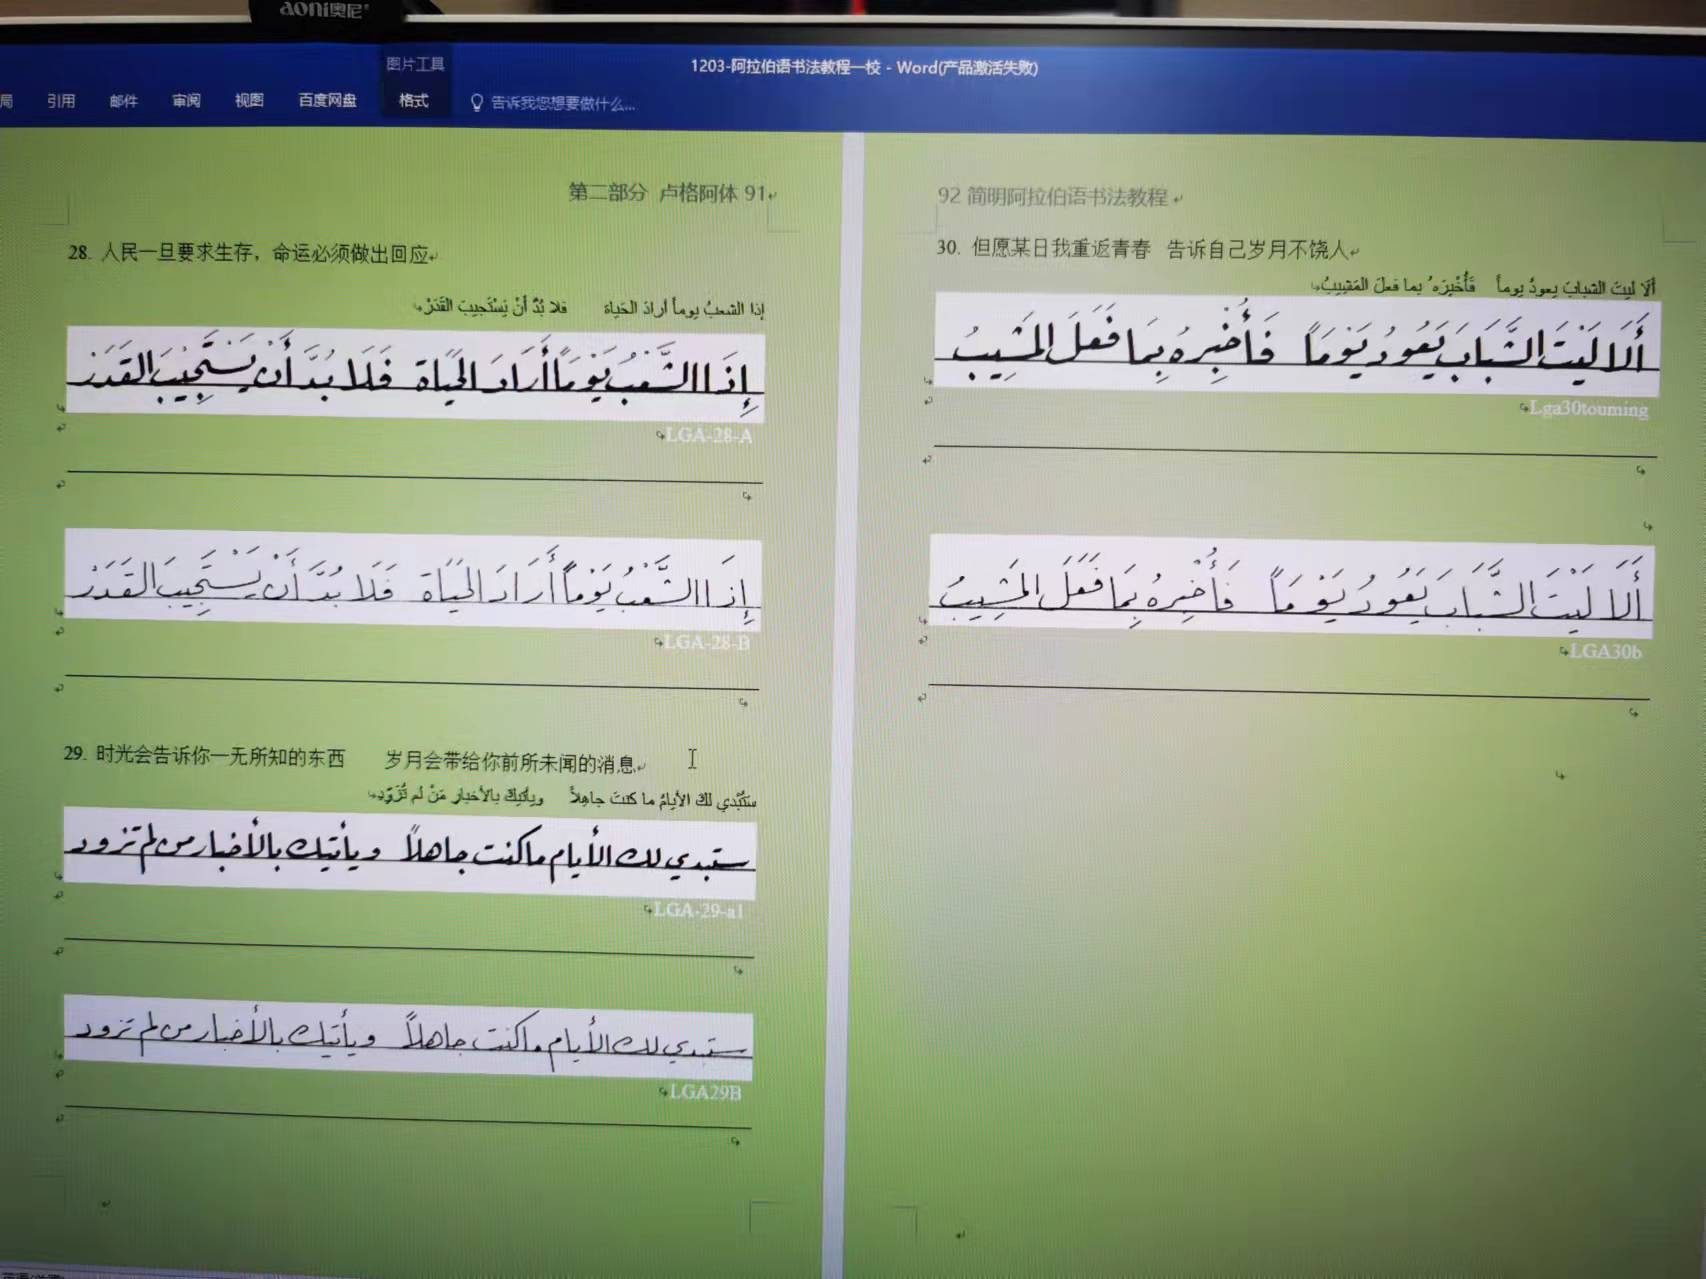 aoni奥尼
图片工具
1203-阿拉伯语书法教程一校 - Word(产品激活失败)
局 引用 邮件 审阅 视图 百度网盘 格式 告诉我您想要做什么...
第二部分 卢格阿体 91
28. 人民一旦要求生存，命运必须做出回应
إذا الشعبُ يوماً أرادَ الحَياة فلا بُدَّ أنْ يَسْتَجيبَ القَدَرْ
إِذَا الشَّعْبُ يَوْمَاً أَرَادَ الحَيَاة فَلَا بُدَّ أَنْ يَسْتَجِيبَ القَدَرْ
LGA-28-A
إِذَا الشَّعْبُ يَوْمَاً أَرَادَ الحَيَاة فَلَا بُدَّ أَنْ يَسْتَجِيبَ القَدَرْ
LGA-28-B
29. 时光会告诉你一无所知的东西 岁月会带给你前所未闻的消息
ستُبْدي لكَ الأيامُ ما كنتَ جاهِلاً ويأتيكَ بالأخبارِ مَنْ لم تُزَوِّدِ
ستبدي لك الأيام ما كنت جاهلاً ويأتيك بالأخبار من لم تزود
LGA-29-a1
ستبدي لك الأيام ما كنت جاهلاً ويأتيك بالأخبار من لم تزود
LGA29B
92 简明阿拉伯语书法教程
30. 但愿某日我重返青春 告诉自己岁月不饶人
ألَا ليتَ الشبابَ يعودُ يوماً فَأُخْبِرَه ُ بما فعلَ المَشِيبُ
أَلَا لَيْتَ الشَّبَابَ يَعُودُ يَوْمَاً فَأُخْبِرَهُ بِمَا فَعَلَ المَشِيبُ
Lga30touming
أَلَا لَيْتَ الشَّبَابَ يَعُودُ يَوْمَاً فَأُخْبِرَهُ بِمَا فَعَلَ المَشِيبُ
LGA30b